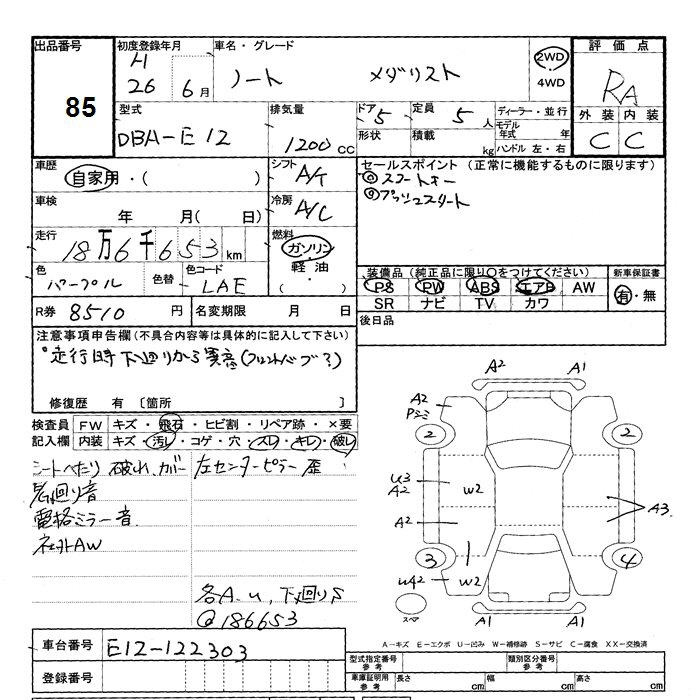 出品番号
85
初度登録年月
H
26年 6月
車名・グレード
ノート メダリスト
2WD
4WD
評価点
RA
外装 内装
C C
型式
DBA-E12
排気量
1200 CC
ドア 5
形状
定員 5人
積載 kg
ディーラー・並行
モデル年式 年
ハンドル 左・右
車歴
自家用・( )
シフト
A/T
セールスポイント (正常に機能するものに限ります)
スマートキー
プッシュスタート
車検
年 月( 日)
冷房
A/C
走行
18万6千653 km
燃料
ガソリン
軽油
( )
色
パープル
色替
色コード
LAE
装備品 (純正品に限り○をつけてください)
PS PW ABS エアB AW
SR ナビ TV カワ
新車保証書
有・無
R券 8510 円
名変期限 月 日
後日品
注意事項申告欄 (不具合内容等は具体的に記入して下さい)
走行時下廻りから異音(フロントハブ?)
修復歴 有 〔箇所 〕
検査員記入欄
FW キズ・飛石・ヒビ割・リペア跡・×要
内装 キズ・汚レ・コゲ・穴・スレ・キレ・破レ
シートへたり 破れ、カバー
左センターピラー歪
下廻り音
電格ミラー音
社外AW
各A.U, 下廻りS
@186653
A2 A1
A2
Pシミ
2 2
U3
A2
W2
A2
A3
3 4
UA2
W2
A1 A1
スペア
A-キズ E-エクボ U-凹み W-補修跡 S-サビ C-腐食 XX-交換済
車台番号 E12-122303
登録番号
型式指定番号
参考
類別区分番号
参考
車庫証明用
参考
長さ cm 幅 cm 高さ cm